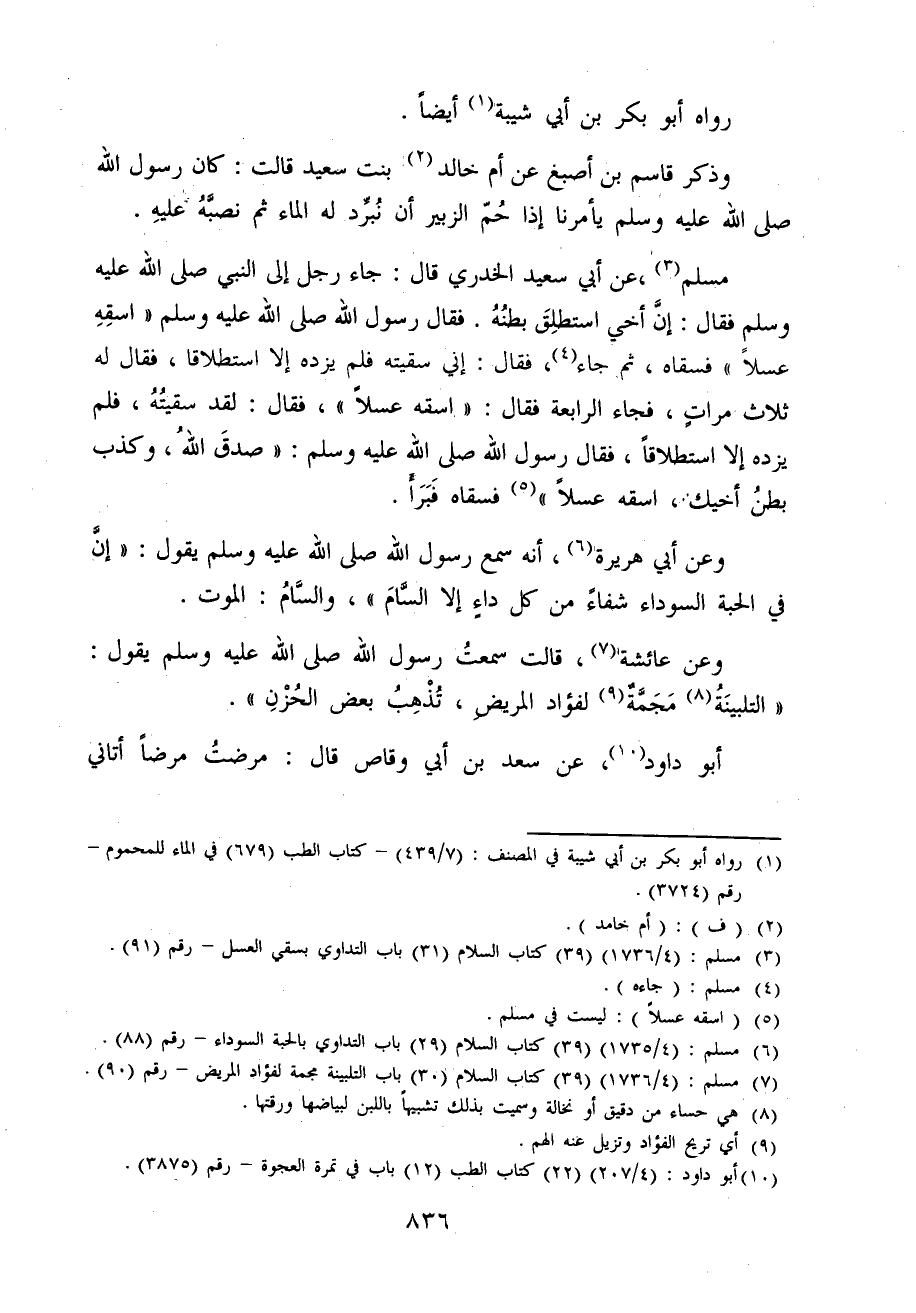 رواه أبو بكر بن أبي شيبة(١) أيضاً .
وذكر قاسم بن أصبغ عن أم خالد(٢) بنت سعيد قالت : كان رسول الله
صلى الله عليه وسلم يأمرنا إذا حُمّ الزبير أن نُبرِّد له الماء ثم نصبَّهُ عليهِ .
مسلم(٣) ،عن أبي سعيد الخدري قال : جاء رجل إلى النبي صلى الله عليه
وسلم فقال : إنَّ أخي استطلِقَ بطنُهُ . فقال رسول الله صلى الله عليه وسلم « اسقِهِ
عسلاً » فسقاه ، ثم جاء(٤)، فقال : إني سقيته فلم يزده إلا استطلاقا ، فقال له
ثلاث مراتٍ ، فجاء الرابعة فقال : « اسقه عسلاً » ، فقال : لقد سقيتُهُ ، فلم
يزده إلا استطلاقاً ، فقال رسول الله صلى الله عليه وسلم : « صدقَ اللهُ ، وكذب
بطنُ أخيك ، اسقه عسلاً »(٥) فسقاه فَبَرَأَ .
وعن أبي هريرة(٦) ، أنه سمع رسول الله صلى الله عليه وسلم يقول : « إنَّ
في الحبة السوداء شفاءً من كل داءٍ إلا السَّامَ » ، والسَّامُ : الموت .
وعن عائشة(٧) ، قالت سمعتُ رسول الله صلى الله عليه وسلم يقول :
« التلبينَةُ(٨) مَجَمَّةٌ(٩) لفؤاد المريضِ ، تُذْهِبُ بعض الحُزْنِ » .
أبو داود(١٠)، عن سعد بن أبي وقاص قال : مرضتُ مرضاً أتاني
(١) رواه أبو بكر بن أبي شيبة في المصنف : (٤٣٩/٧) – كتاب الطب (٦٧٩) في الماء للمحموم –
رقم (٣٧٢٤) .
(٢) ( ف ) : ( أم حامد ) .
(٣) مسلم : (١٧٣٦/٤) (٣٩) كتاب السلام (٣١) باب التداوي بسقي العسل – رقم (٩١) .
(٤) مسلم : ( جاءه ) .
(٥) ( اسقه عسلاً ) : ليست في مسلم .
(٦) مسلم : (١٧٣٥/٤) (٣٩) كتاب السلام (٢٩) باب التداوي بالحبة السوداء – رقم (٨٨) .
(٧) مسلم : (١٧٣٦/٤) (٣٩) كتاب السلام (٣٠) باب التلبينة مجمة لفؤاد المريض – رقم (٩٠) .
(٨) هي حساء من دقيق أو نخالة وسميت بذلك تشبيهاً باللبن لبياضها ورقتها .
(٩) أي تريح الفؤاد وتزيل عنه الهم .
(١٠)أبو داود : (٢٠٧/٤) (٢٢) كتاب الطب (١٢) باب في تمرة العجوة – رقم (٣٨٧٥) .
٨٣٦